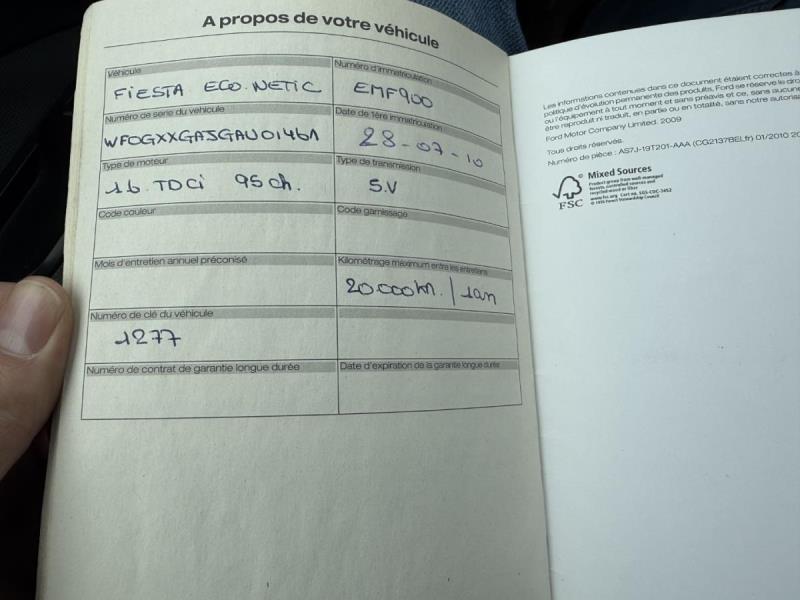 A propos de votre véhicule
Véhicule
FiESTA ECO.NETIC
Numéro d'immatriculation
EMF900
Numéro de série du véhicule
WFOGXXGAJGAU01461
Date de 1ère immatriculation
28-07-10
Type de moteur
1.6 TDCi 95ch.
Type de transmission
5.V
Code couleur
Code garnissage
Mois d'entretien annuel préconisé
Kilométrage maximum entre les entretiens
20.000km. / 1an
Numéro de clé du véhicule
1277
Numéro de contrat de garantie longue durée
Date d'expiration de la garantie longue durée
Les informations contenues dans ce document étaient correctes à
politique d'évolution permanente des produits, Ford se réserve le dro
ou l'équipement à tout moment et sans préavis et ce, sans aucune
être reproduit ni traduit, en partie ou en totalité, sans notre autorisa
Ford Motor Company Limited. 2009
Tous droits réservés.
Numéro de pièce : AS7J-19T201-AAA (CG2137BELfr) 01/2010 20
FSC
Mixed Sources
Product group from well-managed
forests, controlled sources and
recycled wood or fiber
www.fsc.org Cert no. SGS-COC-3452
© 1996 Forest Stewardship Council